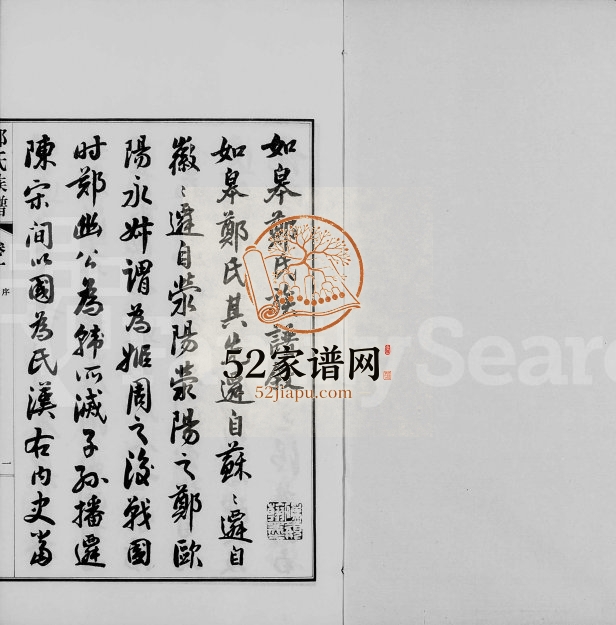 如皋鄭氏族譜叙
如皋鄭氏其先遷自蘇〻遷自
徽〻遷自滎陽滎陽之鄭歐
陽永叔謂為姬周之後戰國
时鄭幽公為韩所滅子孙播遷
陳宋间以國為氏漢右内史當
鄭氏族譜
卷一
序
一
52家谱网
52jiapu.com
FamilySearch